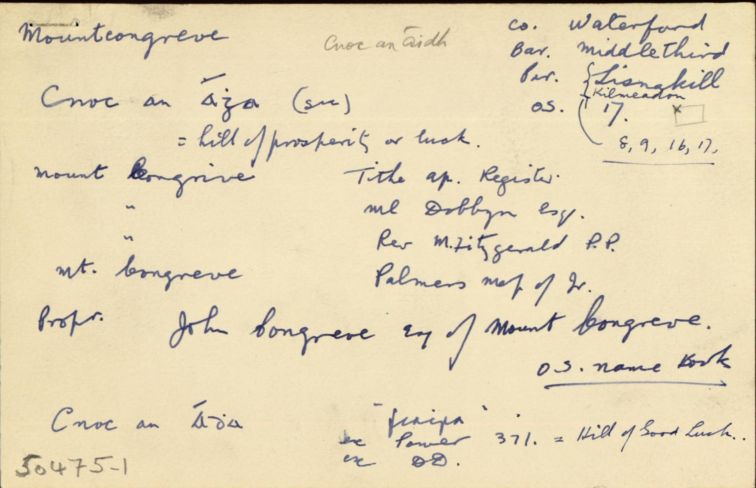 Mountcongreve
Cnoc an áidh
Co. Waterford
Bar. Middlethird
Par. { Lisnakill
Kilmeadon
OS. 17.
8, 9, 16, 17.
Cnoc an Áġa (sic)
= hill of prosperity or luck.
Mount Congrive Tithe ap. Register.
" Ml Dobbyn Esq.
" Rev M. Fitzgerald P.P.
Mt. Congreve Palmers map of Ir.
Propr. John Congreve Esq of Mount Congreve.
O.S. Name Book
Cnoc an Áġa
ex Power 371. = Hill of Good Luck..
50475-1